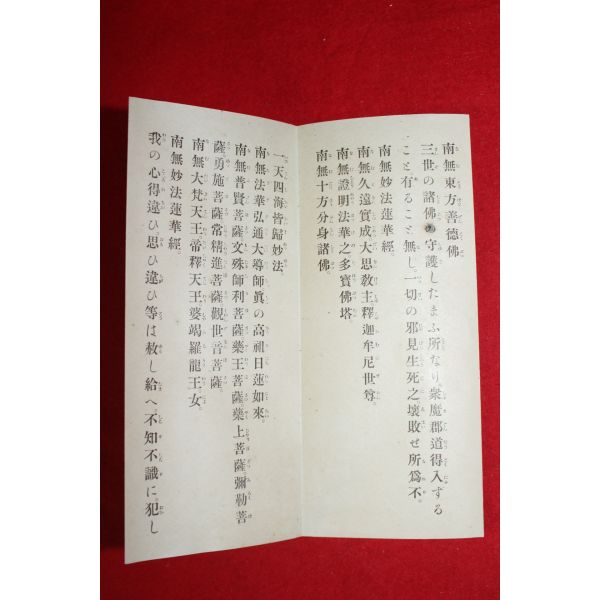 南無東方善德佛
三世の諸佛の守護したまふ所なり衆魔郡道得入する
こと有ること無し。一切の邪見生死之壞敗せ所爲不。
南無妙法蓮華經。
南無久遠實成大恩敎主釋迦牟尼世尊。
南無證明法華之多寶佛塔
南無十方分身諸佛。
一天四海皆歸妙法、
南無法華弘通大導師眞の高祖日蓮如來。
南無普賢菩薩文殊師利菩薩藥王菩薩藥上菩薩彌勒菩
薩勇施菩薩常精進菩薩觀世音菩薩。
南無大梵天王帝釋天王婆竭羅龍王女。
南無妙法蓮華經。
我の心得違ひ思ひ違ひ等は赦し給へ不知不識に犯し